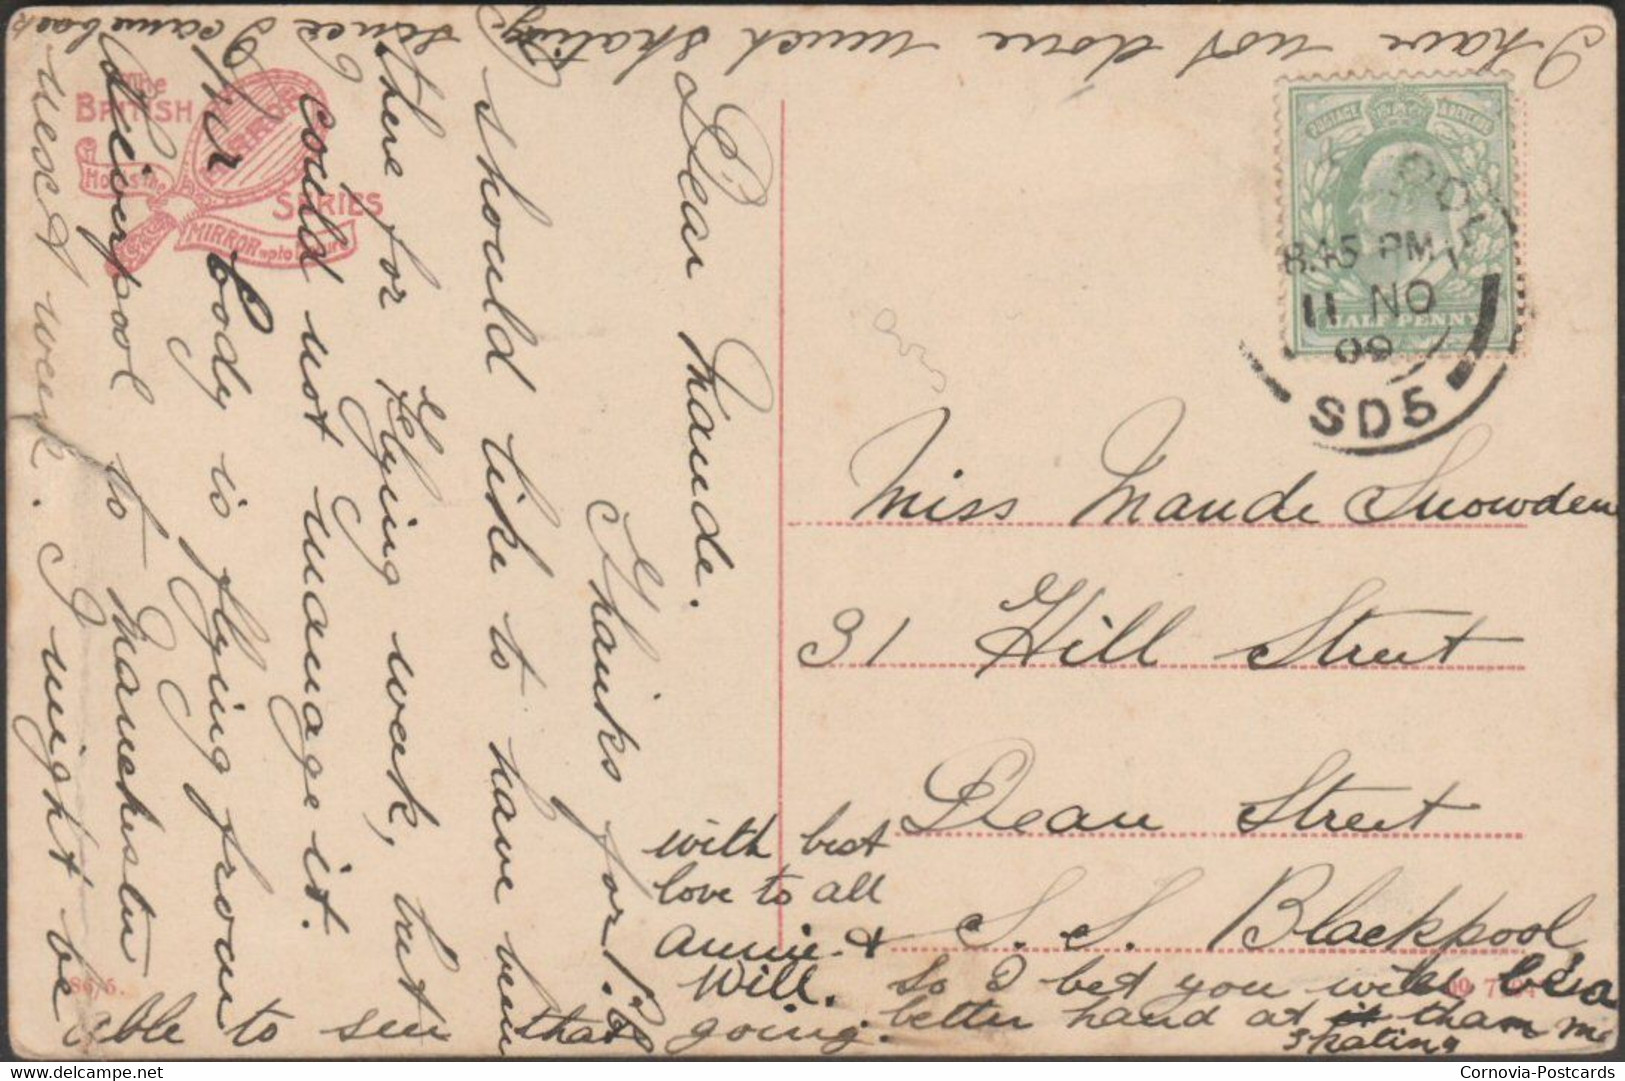 Dear Maude.
Thanks for P.C.
should like to have been
there for Flying week, but
could not manage it.
Mr Cody is flying from
Liverpool to Manchester
next week. I might be
able to see that going.
I have not done much skating since I came back
So I bet you will be a
better hand at it than me
skating
with best
love to all
Annie &
Will.
Miss Maude Snowden
31 Hill Street
Dean Street
S. S. Blackpool
The
BRITISH
MIRROR
SERIES
Holds the
MIRROR up to Nature
POSTAGE
REVENUE
HALF PENNY
8.45 PM
11 NO
09
SD5
86/5.
Cornovia-Postcards